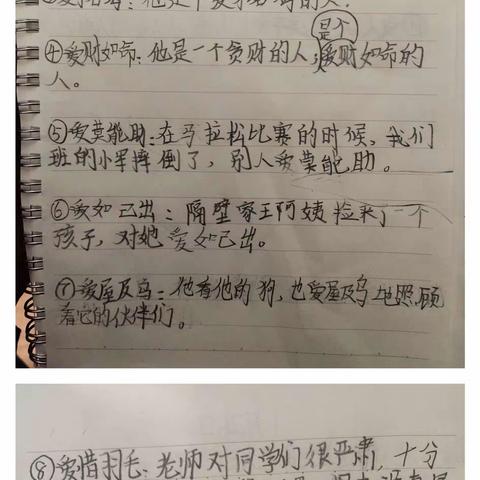 是个
④爱财如命：他是一个贪财的人；爱财如命的
人。
⑤爱莫能助：在马拉松比赛的时候，我们
班的小军摔倒了，别人爱莫能助。
⑥爱如己出：隔壁家王阿姨捡来了一个
孩子，对她爱如己出。
⑦爱屋及乌：他看他的狗，也爱屋及乌地照顾
着它的伙伴们。
⑧爱惜羽毛：老师对同学们很严肃，十分